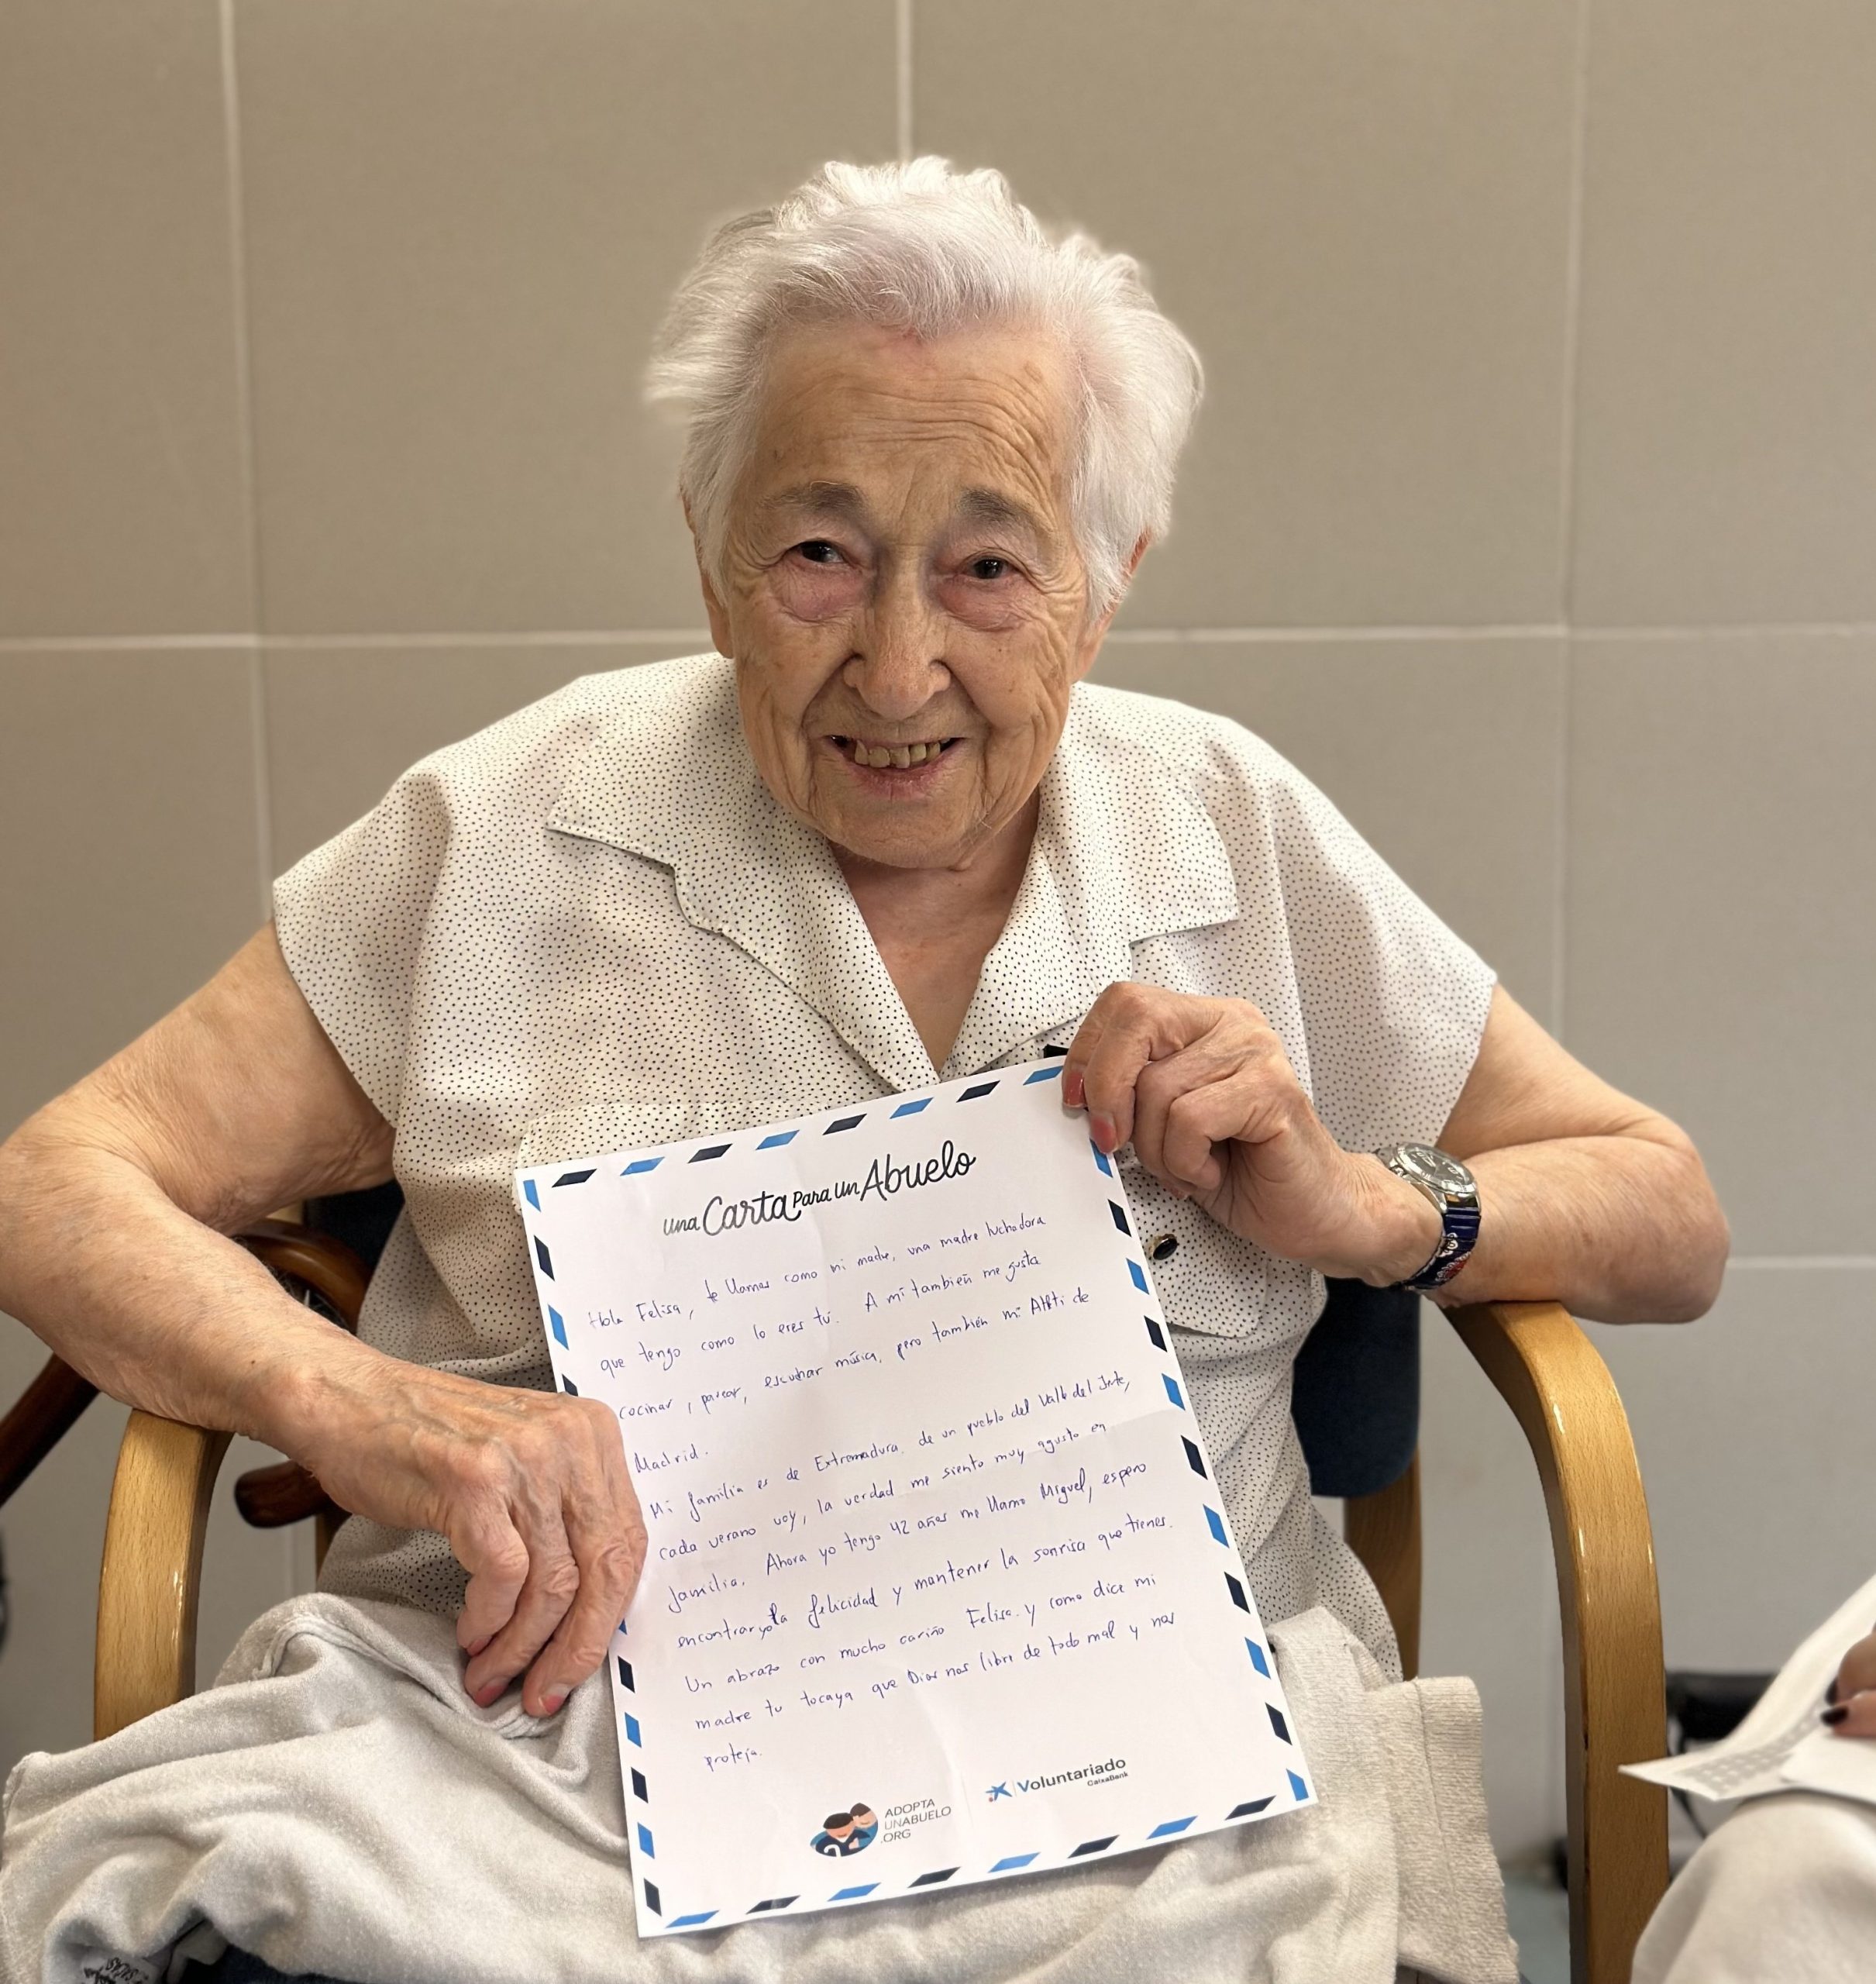 una Carta para un Abuelo
Hola Felisa, te llamas como mi madre, una madre luchadora
que tengo como lo eres tú. A mí también me gusta
cocinar, pasear, escuchar música, pero también mi Atleti de
Madrid.
Mi familia es de Extremadura, de un pueblo del Valle del Jerte,
cada verano voy, la verdad me siento muy agusto en
familia. Ahora yo tengo 42 años me llamo Miguel, espero
encontrar yo la felicidad y mantener la sonrisa que tienes.
Un abrazo con mucho cariño Felisa y como dice mi
madre tu tocaya que Dios nos libre de todo mal y nos
proteja.
ADOPTA
UNABUELO
.ORG
Voluntariado
CaixaBank